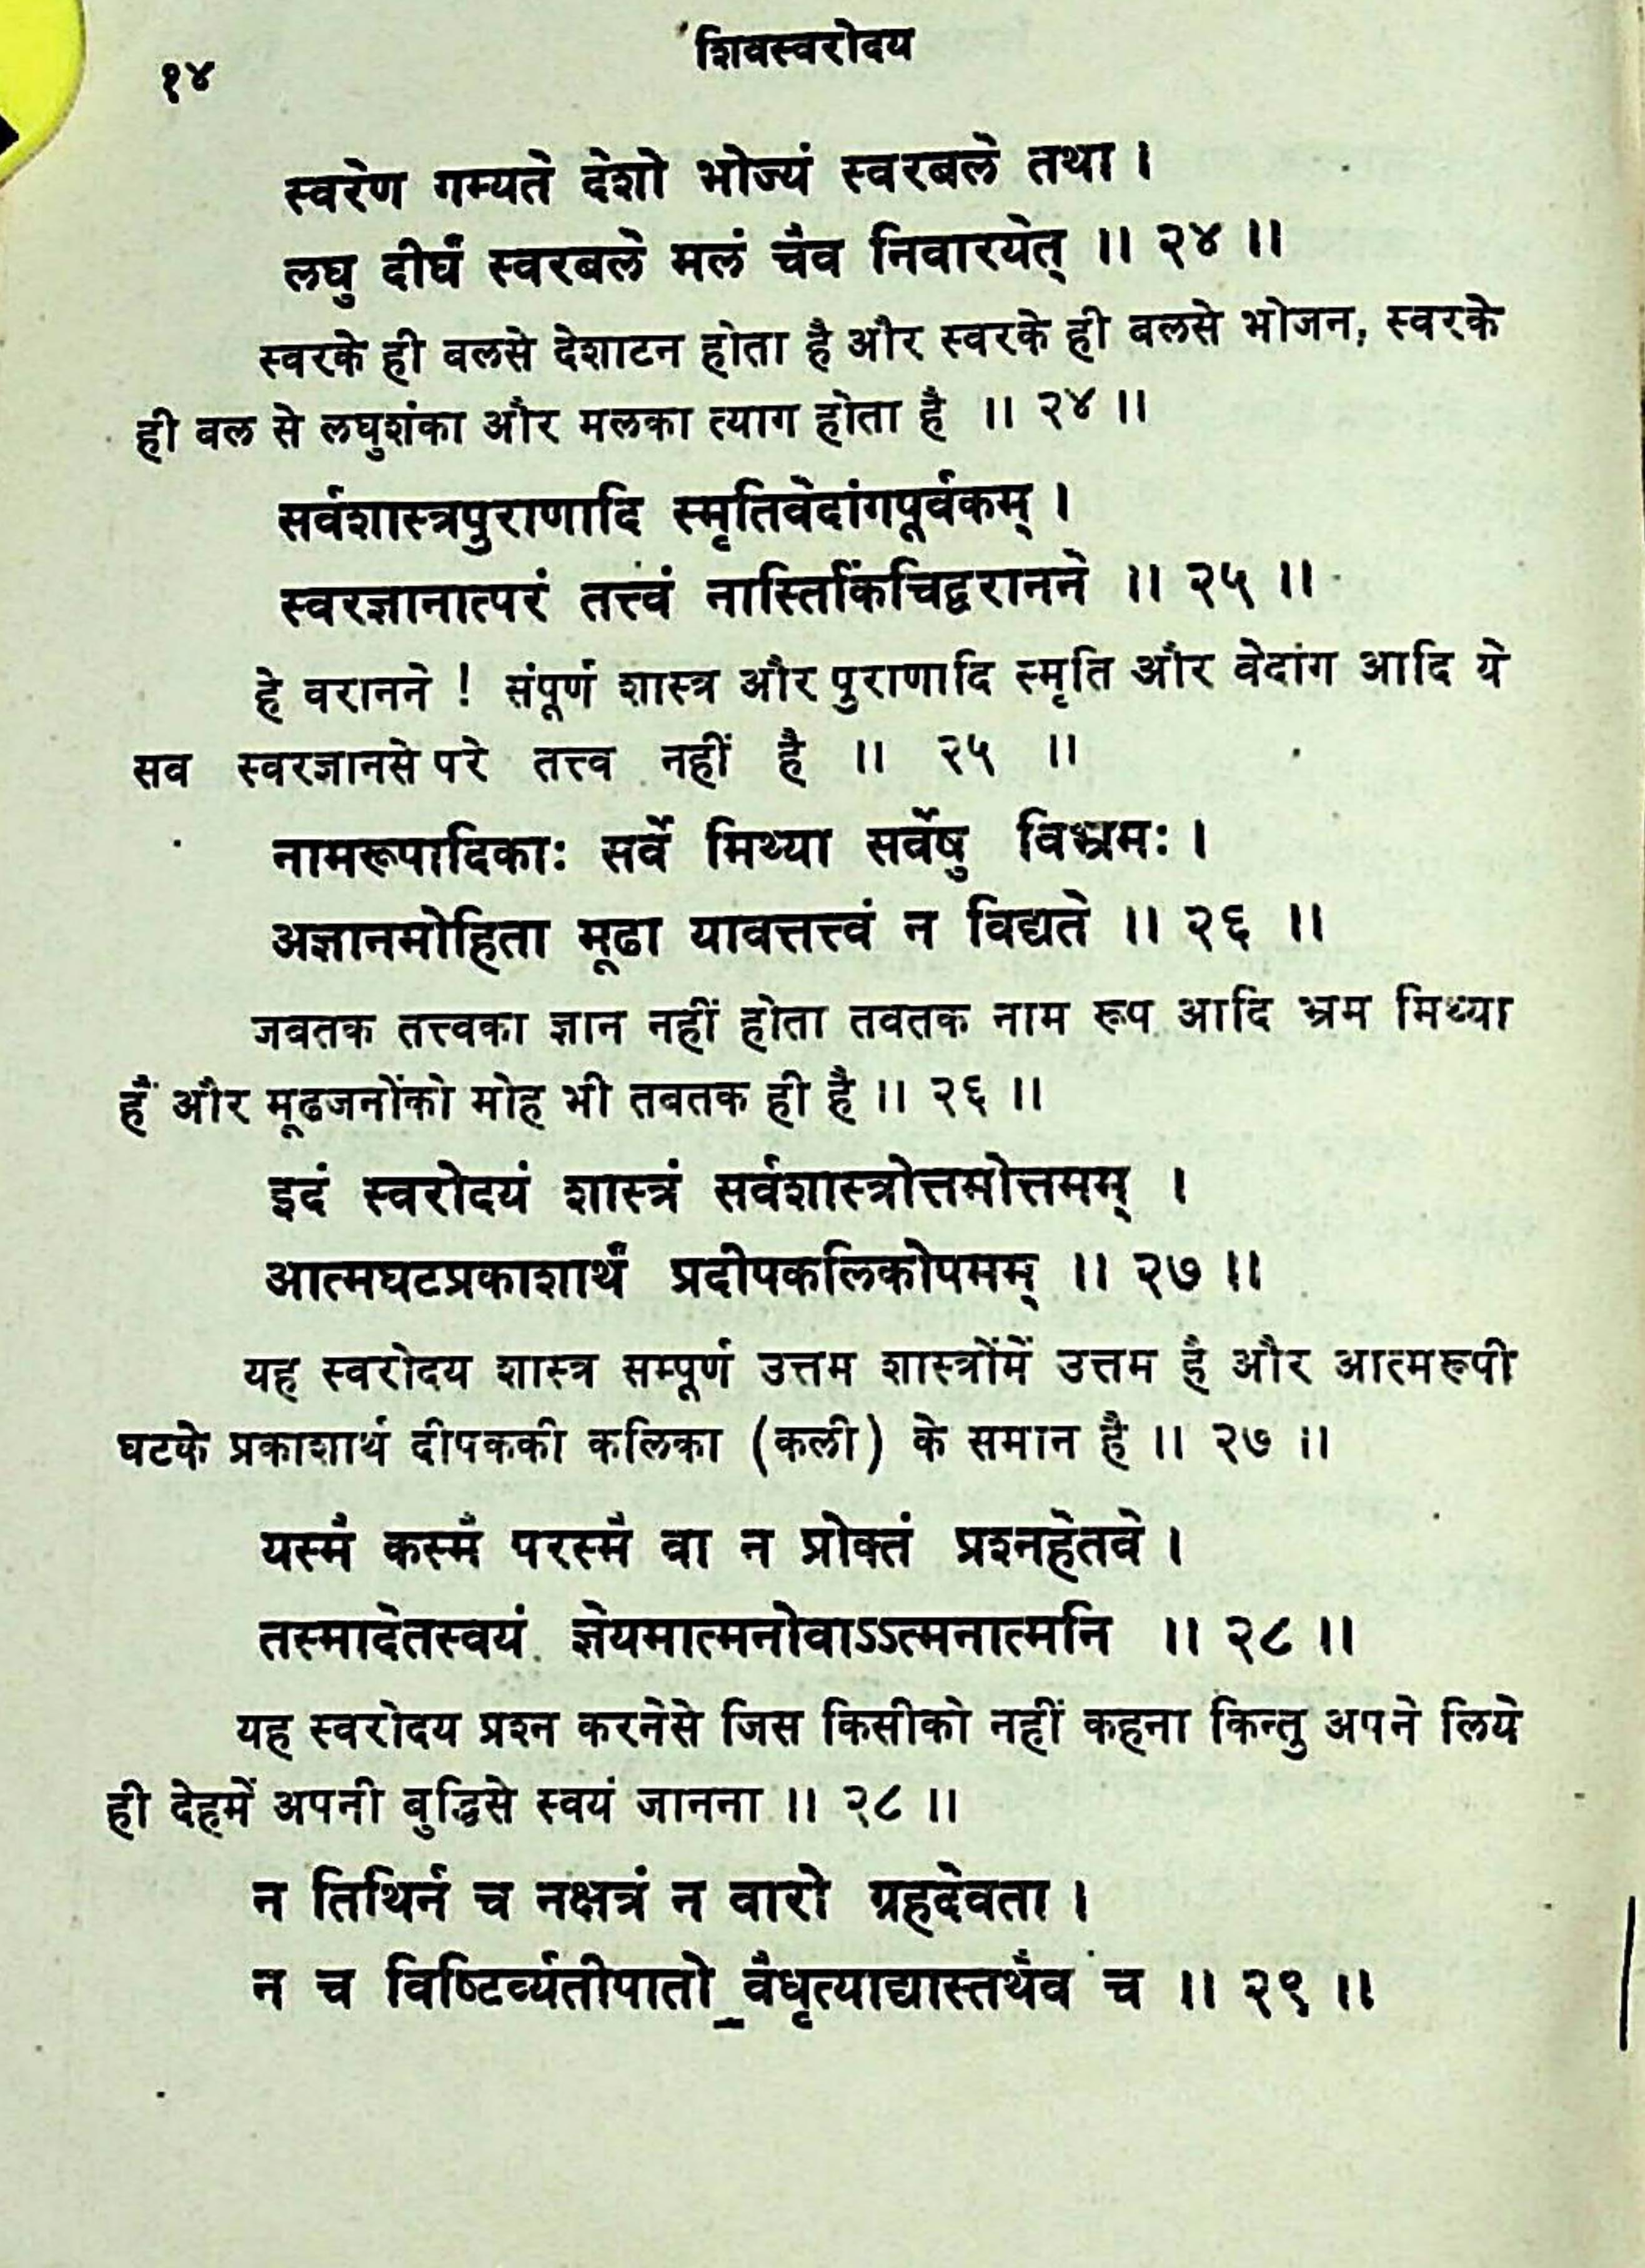 १४
शिवस्वरोदय
स्वरेण गम्यते देशो भोज्यं स्वरबले तथा ।
लघु दीर्घं स्वरबले मलं चैव निवारयेत् ॥ २४ ॥
स्वरके ही बलसे देशाटन होता है और स्वरके ही बलसे भोजन, स्वरके
ही बल से लघुशंका और मलका त्याग होता है ॥ २४ ॥
सर्वशास्त्रपुराणादि स्मृतिवेदांगपूर्वकम् ।
स्वरज्ञानात्परं तत्त्वं नास्तिकिंचिद्वरानने ॥ २५ ॥
हे वरानने ! संपूर्ण शास्त्र और पुराणादि स्मृति और वेदांग आदि ये
सब स्वरज्ञानसे परे तत्त्व नहीं है ॥ २५ ॥
नामरूपादिकाः सर्वे मिथ्या सर्वेषु विभ्रमः ।
अज्ञानमोहिता मूढा यावत्तत्त्वं न विद्यते ॥ २६ ॥
जबतक तत्त्वका ज्ञान नहीं होता तबतक नाम रूप आदि भ्रम मिथ्या
हैं और मूढजनोंको मोह भी तबतक ही है ॥ २६ ॥
इदं स्वरोदयं शास्त्रं सर्वशास्त्रोत्तमोत्तमम् ।
आत्मघटप्रकाशार्थं प्रदीपकलिकोपमम् ॥ २७ ॥
यह स्वरोदय शास्त्र सम्पूर्ण उत्तम शास्त्रोंमें उत्तम है और आत्मरूपी
घटके प्रकाशार्थ दीपककी कलिका (कली) के समान है ॥ २७ ॥
यस्मै कस्मै परस्मै वा न प्रोक्तं प्रश्नहेतवे ।
तस्मादेतस्वयं ज्ञेयमात्मनोवाऽऽत्मनात्मनि ॥ २८ ॥
यह स्वरोदय प्रश्न करनेसे जिस किसीको नहीं कहना किन्तु अपने लिये
ही देहमें अपनी बुद्धिसे स्वयं जानना ॥ २८ ॥
न तिथिर्न च नक्षत्रं न वारो ग्रहदेवता ।
न च विष्टिर्व्यतीपातो वैधृत्याद्यास्तथैव च ॥ २९ ॥